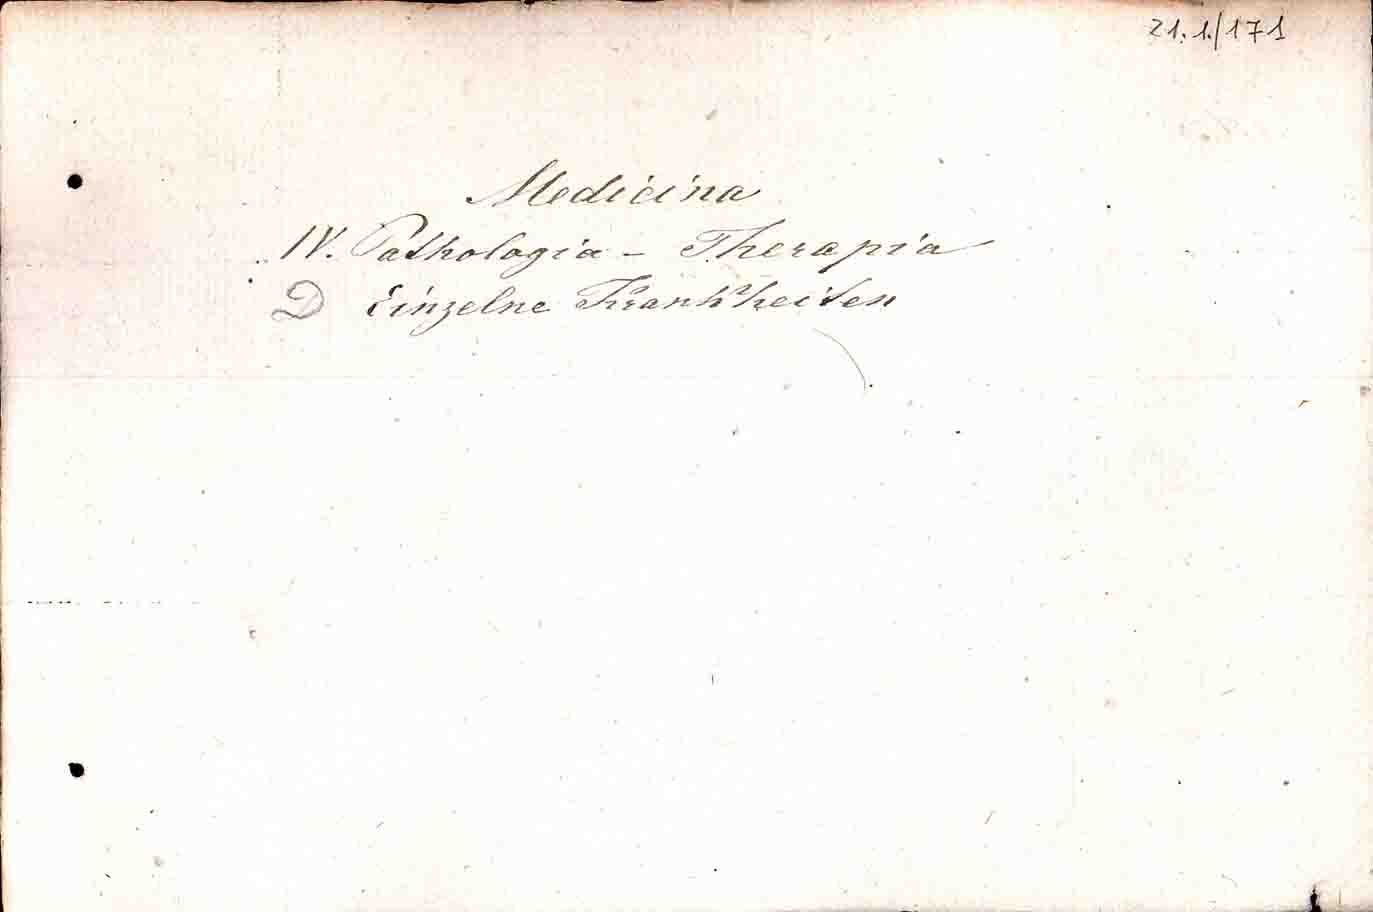 21.1./171
Medicina
IV. Pathologia - Therapia
D Einzelne Krankheiten